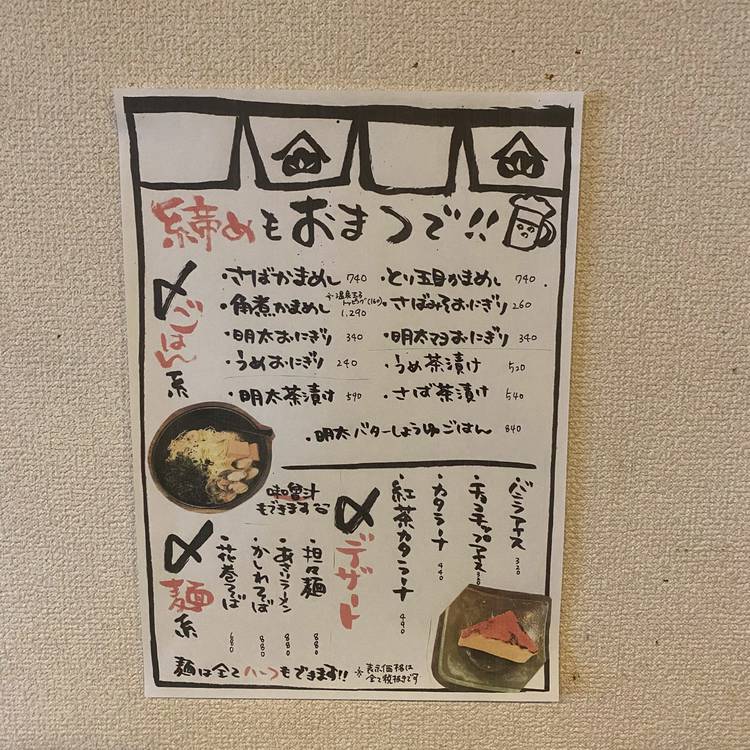 締めもおまつで!!
〆ごはん系
・さばかまめし 740
・とり五目かまめし 740
・角煮かまめし 1,290
※温泉玉子
トッピング(160)
・さばみそおにぎり 260
・明太おにぎり 340
・明太マヨおにぎり 340
・うめおにぎり 240
・うめ茶漬け 520
・明太茶漬け 590
・さば茶漬け 540
・明太バターしょうゆごはん 840
味噌汁
もできます
〆デザート
バニラアイス 320
・チョコチップアイス
・カタラーナ 440
・紅茶カタラーナ 490
〆麺系
・担々麺 880
・あさりラーメン 880
・かしわそば 880
・花巻そば 680
麺は全てハーフもできます!!
※表示価格は
全て税抜きです